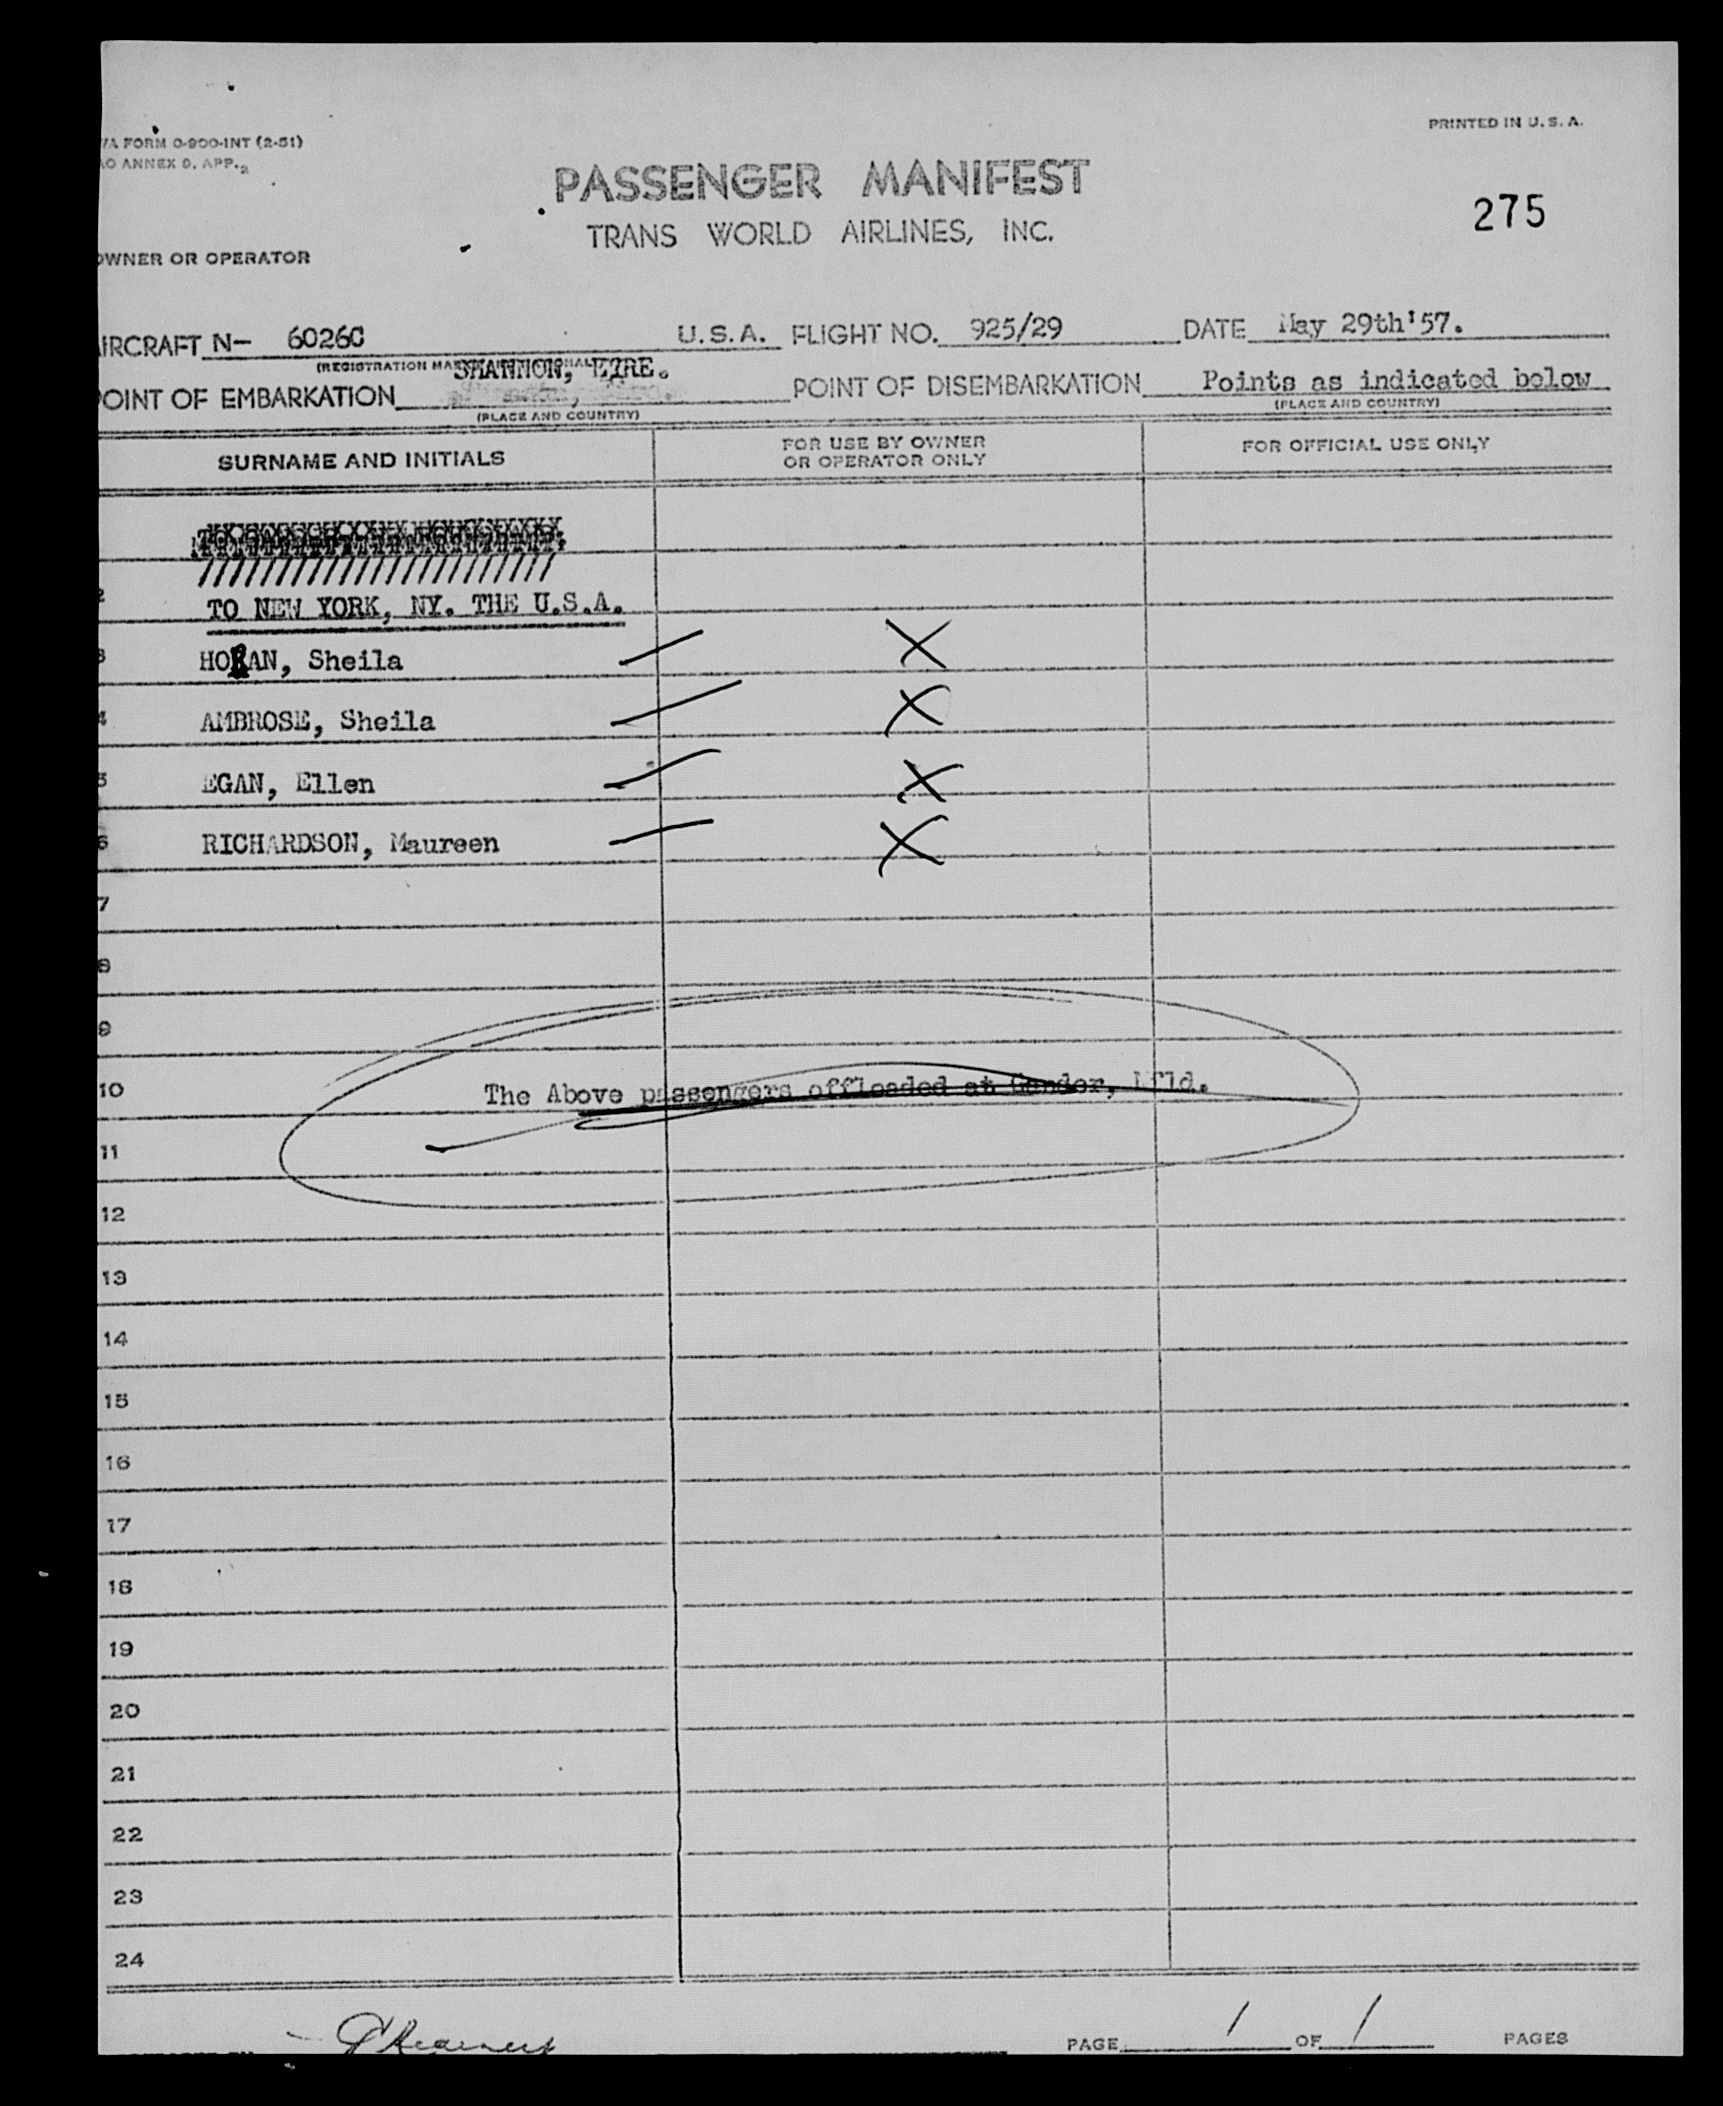 PRINTED IN U.S.A.
WA FORM O-900-INT (2-51)
AO ANNEX 9, APP. 2
PASSENGER MANIFEST
TRANS WORLD AIRLINES, INC.
275
OWNER OR OPERATOR
AIRCRAFT N- 6026C U.S.A. FLIGHT NO. 925/29 DATE May 29th'57.
SHANNON, EIRE.
POINT OF EMBARKATION POINT OF DISEMBARKATION Points as indicated below
(PLACE AND COUNTRY) (PLACE AND COUNTRY)
SURNAME AND INITIALS FOR USE BY OWNER OR OPERATOR ONLY FOR OFFICIAL USE ONLY
2 TO NEW YORK, NY. THE U.S.A.
3 HORAN, Sheila
4 AMBROSE, Sheila
5 EGAN, Ellen
6 RICHARDSON, Maureen
7
8
9
10 The Above passengers offloaded at Gander, Nfld.
11
12
13
14
15
16
17
18
19
20
21
22
23
24
PAGE 1 OF 1 PAGES